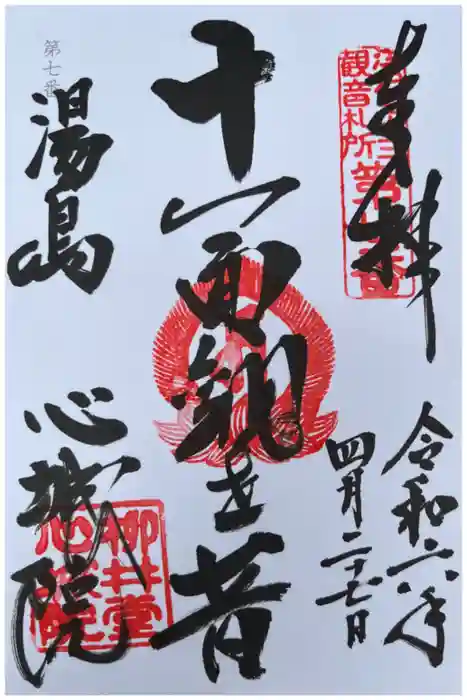 奉拝
観音札所
令和六年
四月二十七日
十一面観世音
第七番
湯島
心城院
柳井堂
心城院